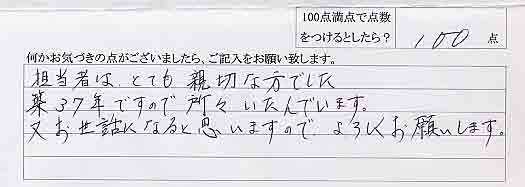 100点満点で点数
をつけるとしたら? 100 点
何かお気づきの点がございましたら、ご記入をお願い致します。
担当者は、とても親切な方でした
築37年ですので所々いたんでいます。
又お世話になると思いますので、よろしくお願いします。